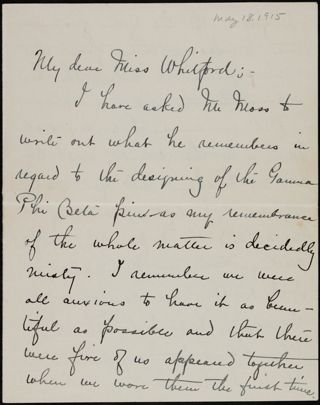 May 18, 1915
My dear Miss Whitford;-
I have asked Mr Moss to
write out what he remembers in
regard to the designing of the Gamma
Phi Beta pins - as my remembrance
of the whole matter is decidedly
misty. I remember we were
all anxious to have it as beau-
tiful as possible and that there
were five of us appeared together
when we wore them the first time.